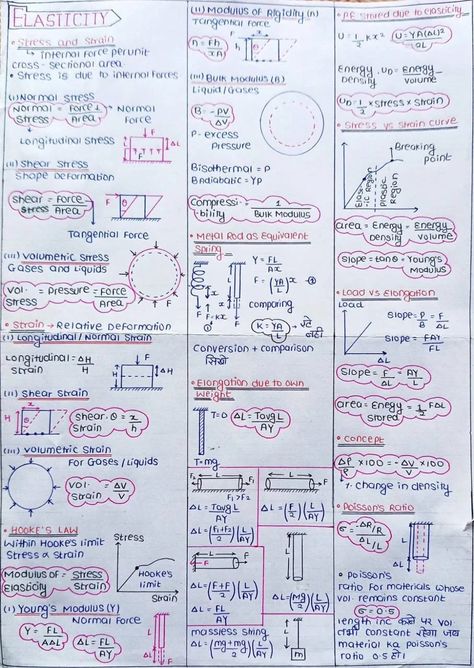 ELASTICITY
• Stress and Strain
↳ internal Force perunit
cross-sectional area
• Stress is due to internal forces
(i) Normal Stress
Normal Stress = Force⊥ / Area → Normal Force
Longitudinal stress
F
F
(ii) Shear Stress
Shape deformation
Shear Stress = Force / Area
F
θ
Tangential Force
(iii) Volumetric Stress
Gases and Liquids
Vol. Stress = Pressure = Force / Area
• Strain → Relative deformation
(i) Longitudinal/Normal Strain
Longitudinal = ΔH / H
F
H
ΔH
(ii) Shear Strain
x
H
Shear Strain θ = x / h
(iii) Volumetric Strain
For Gases/Liquids
Vol. Strain = ΔV / V
• HOOKE'S LAW
Within Hooke's limit
Stress α Strain
Modulus of Elasticity = Stress / Strain
Stress
Hooke's limit
Strain
(i) Young's Modulus (Y)
Normal Force
Y = FL / AΔL
ΔL = FL / AY
L
ΔL
F
(ii) Modulus of Rigidity (η)
Tangential Force
η = Fh / xA
h
x
F
(iii) Bulk Modulus (B)
Liquid/Gases
B = -PV / ΔV
P - excess
Pressure
Bisothermal = P
Badiabatic = γP
Compressibility = 1 / Bulk Modulus
• Metal Rod as Equivalent
Spring
Y = FL / Ax
F = (YA / L) x
F = Kx
comparing
K = YA / L
Conversion + comparison
सिखो
• Elongation due to own
Weight
T=0
T=mg
ΔL = Tavg L / AY
F1
L
F2
F1 > F2
ΔL = Tavg L / AY
ΔL = (F1+F2 / 2)(L / AY)
L
F
ΔL = (F / 2)(L / AY)
F
F
L
ΔL = (F+F / 2)(L / AY)
ΔL = FL / AY
L
ΔL = (mg / 2)(L / AY)
massless string
ΔL = (mg+mg / 2)(L / AY)
L
m
• PE stored due to elasticity
U = 1/2 Kx²
U = YA(ΔL)² / 2L
Energy Density, UD = Energy / Volume
UD = 1/2 × stress × strain
• Stress vs Strain Curve
Breaking
point
Elastic Region
Plastic Region
area = Energy Density = Energy / Volume
Slope = tanθ = Young's Modulus
• Load vs Elongation
Load
Slope = P / B = F / ΔL
Slope = FAY / FL
Slope = F / ΔL = AY / L
area = Energy stored = 1/2 FΔL
• Concept
Δρ / ρ × 100 = -ΔV / V × 100
% change in density
• Poisson's Ratio
σ = -ΔR/R / ΔL/L
L
• Poisson's
ratio for materials whose
vol. remains constant
σ = 0.5
length inc करने पर vol
तभी constant रहेगा जब
material ka poisson's
ratio 0.5 हो।